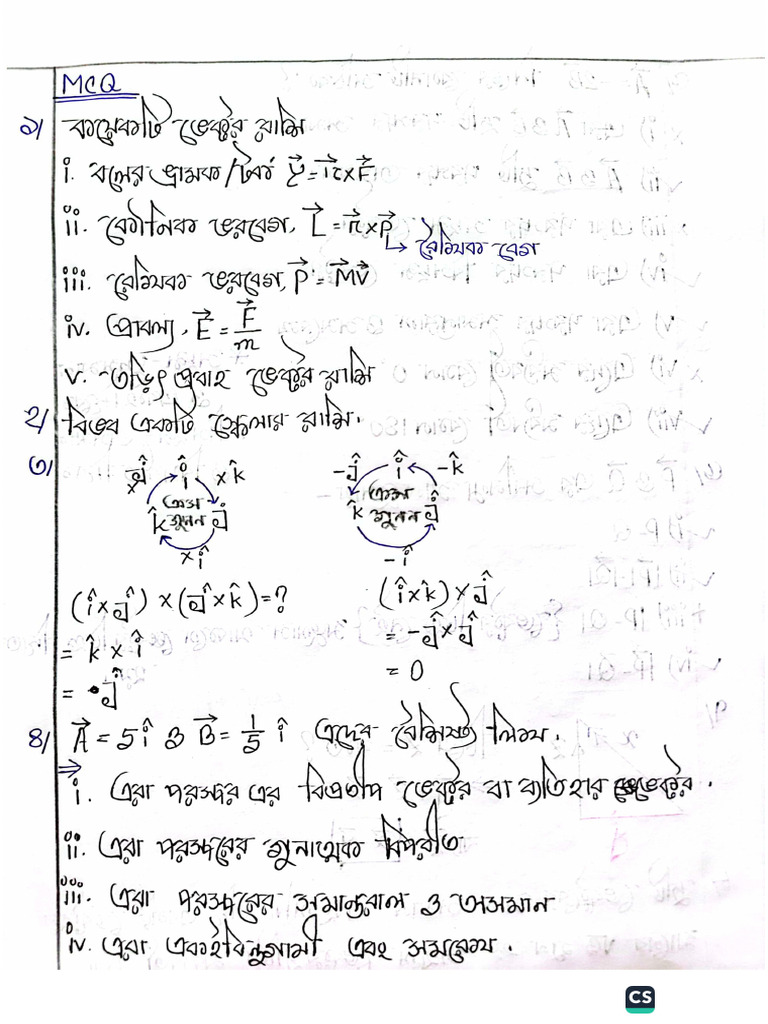 MCQ
১। কয়েকটি ভেক্টর রাশি
i. বলের ভ্রামক/টর্ক τ⃗ = r⃗ × F⃗
ii. কৌনিক ভরবেগ, L⃗ = r⃗ × P⃗
↳ রৈখিক বেগ
iii. রেখিক ভরবেগ, P⃗ = MV⃗
iv. প্রাবল্য, E⃗ = F⃗/m
v. তড়িৎ প্রবাহ ভেক্টর রাশি
২। বিভব একটি স্কেলার রাশি.
৩। ×ĵ î ×k̂ -ĵ î -k̂
k̂ ক্রস গুনন ĵ k̂ ক্রস গুনন ĵ
×î -î
(î×ĵ) × (ĵ×k̂)=? (î×k̂) × ĵ
= k̂ × î = -ĵ×ĵ
= ĵ = 0
৪। A⃗ = 5î ও B⃗ = 1/5 î এদের বৈশিষ্ট্য লিখ.
⇒
i. এরা পরস্পর এর বিপ্রতীপ ভেক্টর বা ব্যতিহার ভেক্টর.
ii. এরা পরস্পরের গুনাত্মক বিপরীত
iii. এরা পরস্পরের সমান্তরাল ও অসমান
iv. এরা একইবিন্দুগামী এবং সমরেখ.
CS